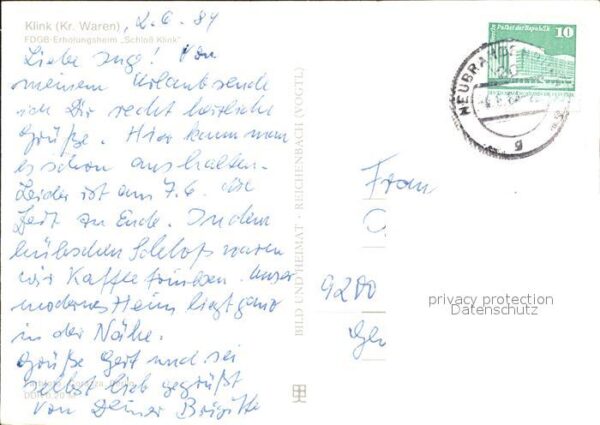 Klink (Kr. Waren), 2.6.84
FDGB-Erholungsheim „Schloß Klink“
Liebe Inge! Von
meinem Urlaub sende
ich Dir recht herzliche
Grüße. Hier kann man
es schon aushalten.
Leider ist am 7.6. die
Zeit zu Ende. In dem
hübschen Schloß waren
wir Kaffee trinken. Unser
modernes Heim liegt ganz
in der Nähe.
Grüße Gert und sei
selbst lieb gegrüßt
von Deiner Brigitte
BILD UND HEIMAT · REICHENBACH (VOGTL)
Palast der Republik
10
NEUBRANDEN
g
Frau
9200
privacy protection
Datenschutz